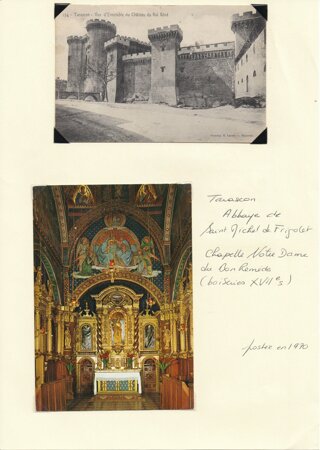 194 - Tarascon - Vue d'Ensemble du Château du Roi Réné
Tarascon
Abbaye de
Saint Michel de Frigolet
Chapelle Notre Dame
du Bon Remede
(boiseries XVII es)
postée en 1970